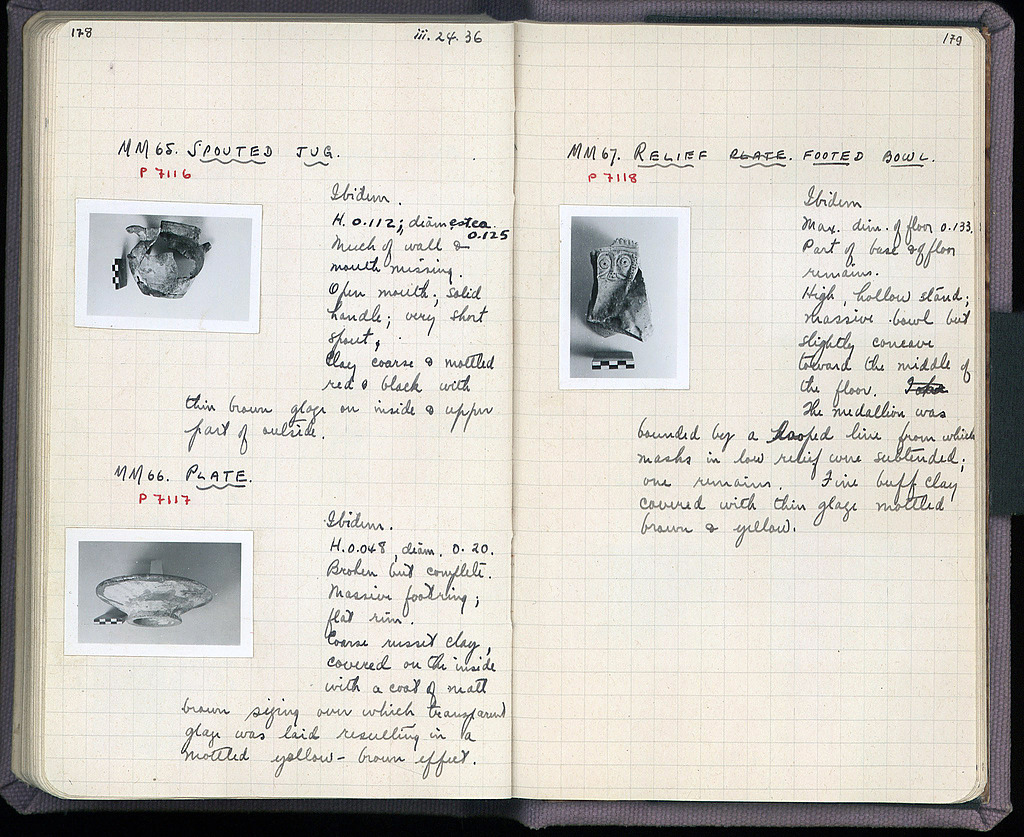 178
iii. 24. 36
MM65. SPOUTED JUG.
P 7116
Ibidem.
H. 0.112; diam est ca.
0.125
Much of wall &
mouth missing.
Open mouth; solid
handle; very short
spout.
Clay coarse & mottled
red & black with
thin brown glaze on inside & upper
part of outside.
MM66. PLATE.
P 7117
Ibidem.
H. 0.048, diam. 0.20.
Broken but complete.
Massive footring;
flat rim.
Coarse russet clay,
covered on the inside
with a coat of matt
brown sizing over which transparent
glaze was laid resulting in a
mottled yellow-brown effect.
179
MM67. RELIEF PLATE. FOOTED BOWL.
P 7118
Ibidem
Max. dim. of floor 0.133.
Part of base & floor
remains.
High, hollow stand;
massive bowl but
slightly concave
toward the middle of
the floor.
The medallion was
bounded by a looped line from which
masks in low relief were subtended;
one remains. Fine buff clay
covered with thin glaze mottled
brown & yellow.